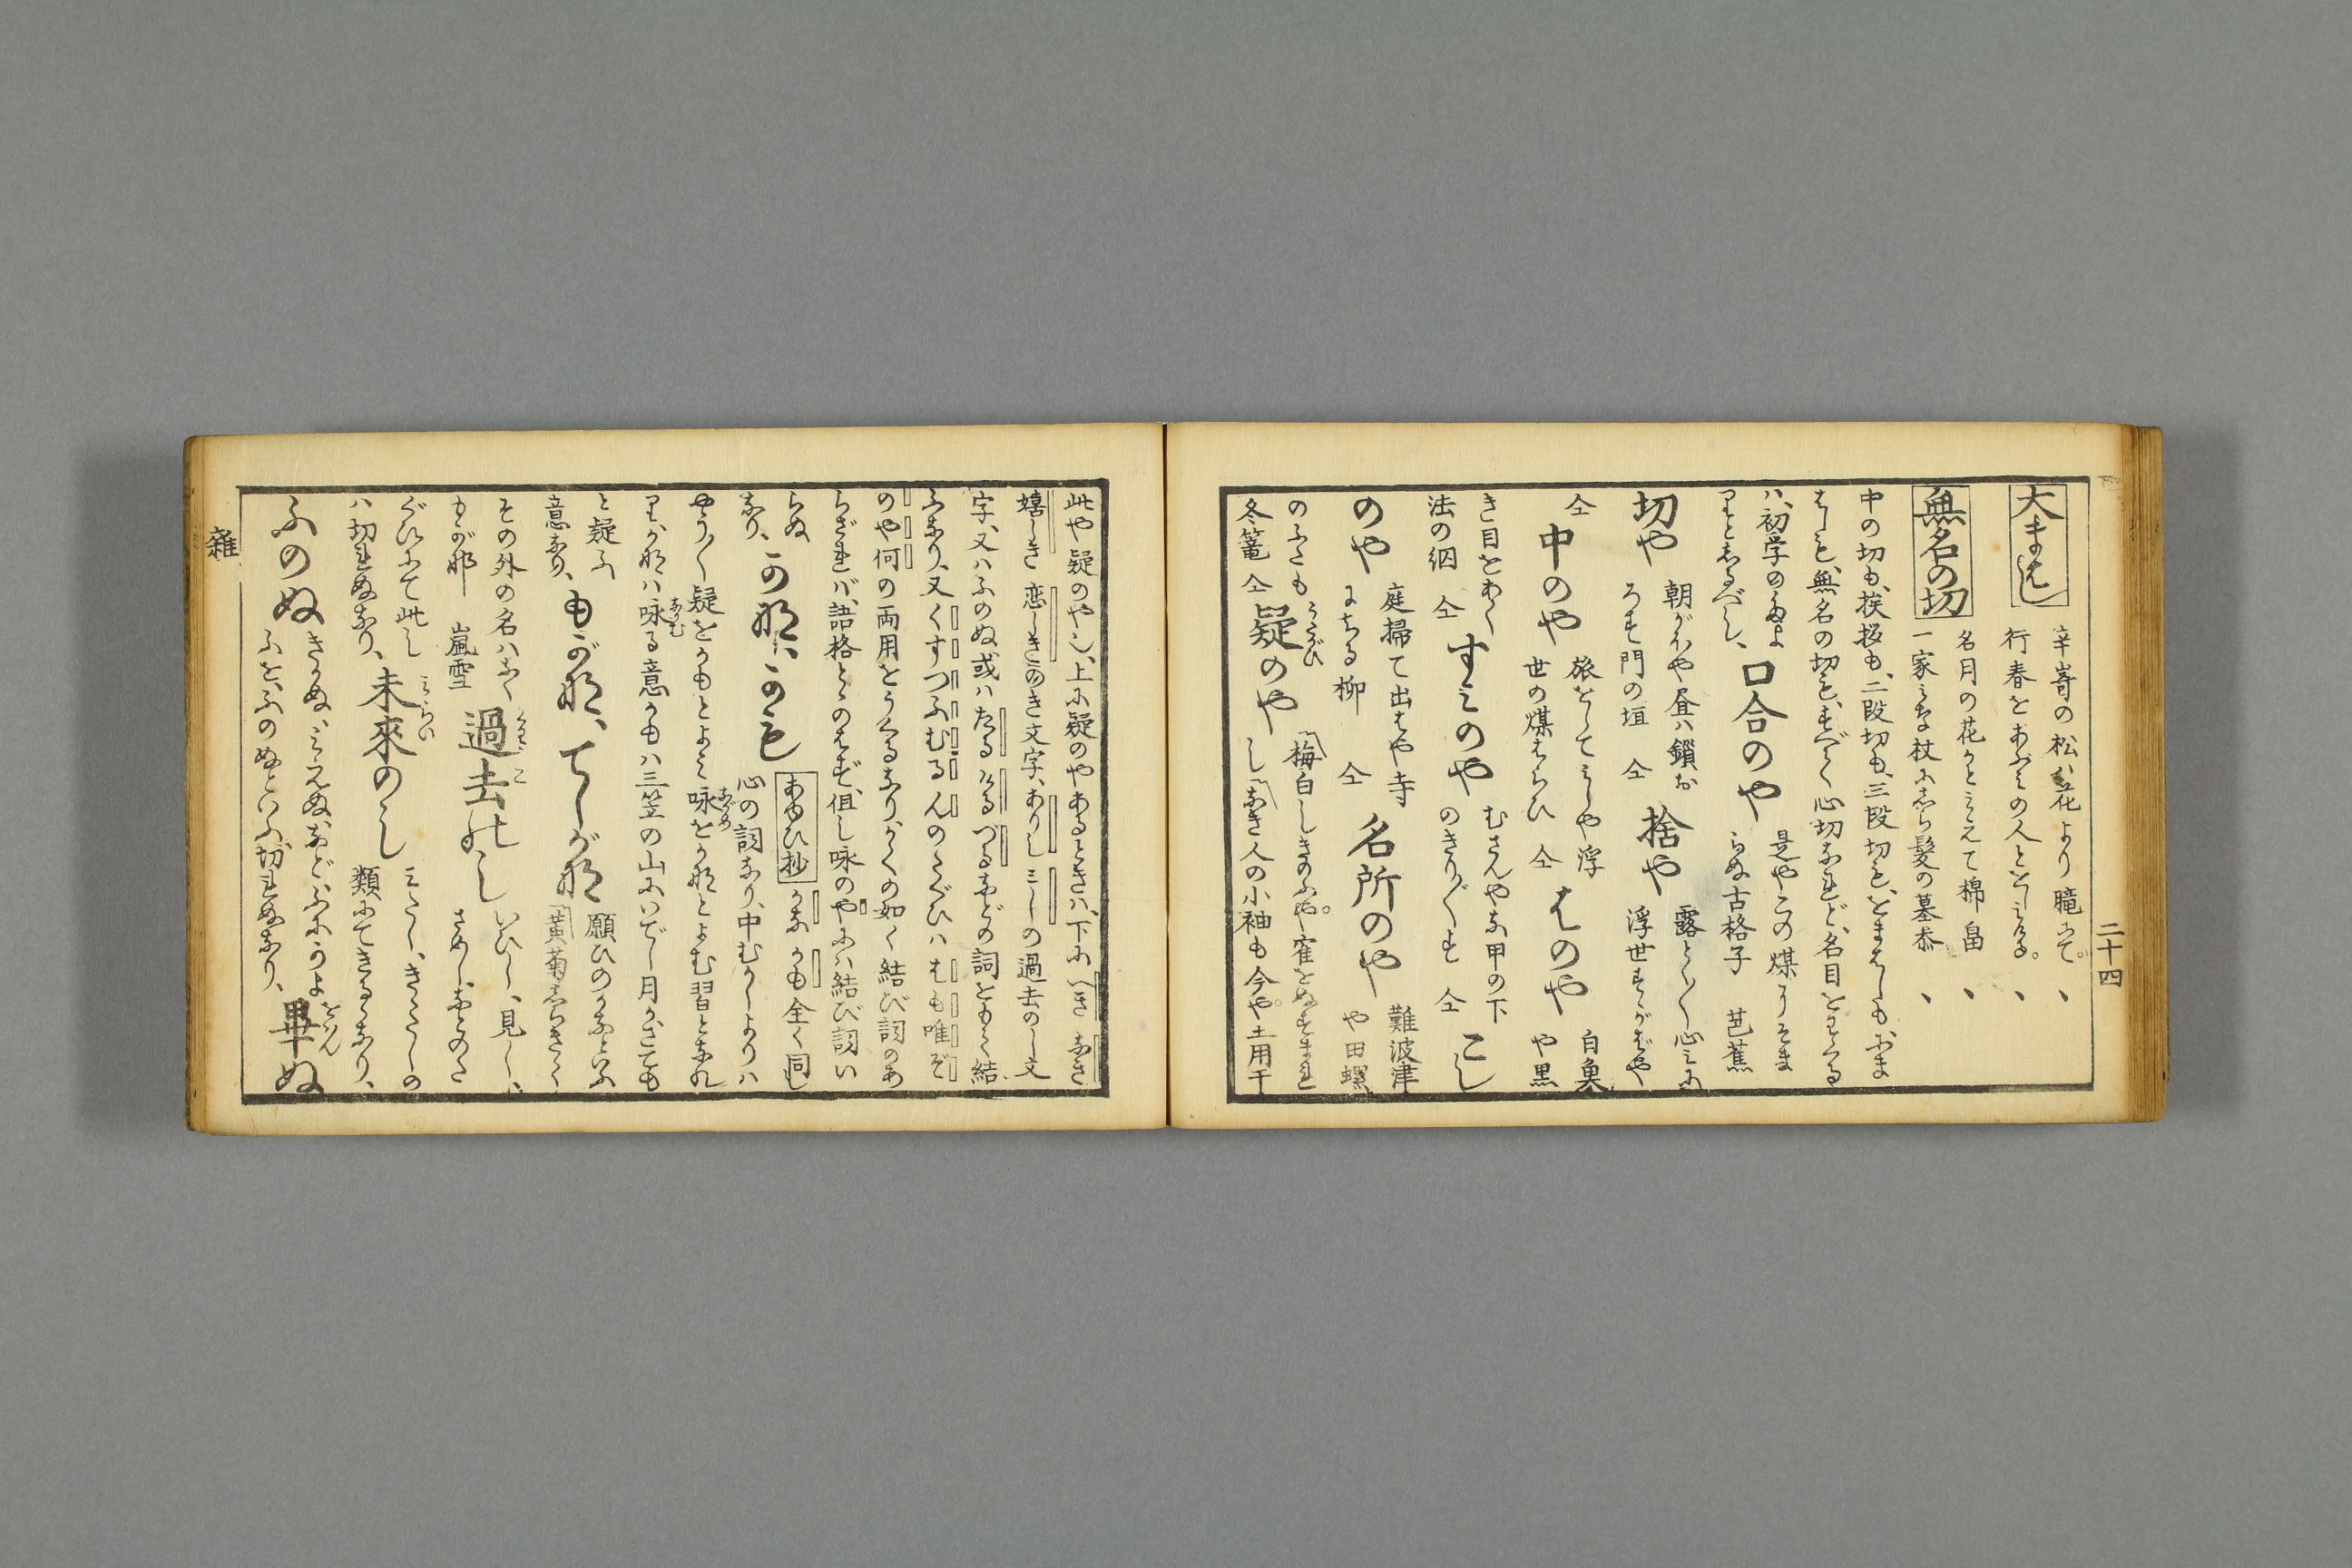 二十四
大まはし
辛崎の松は花より朧にて。
行春をあふみの人とをしみける。
無名の切
名月の花かとみえて棉畠
一家みな杖にしら髪の墓参
中の切も、挨拶も、二段切も、三段切も、をまはしもおま
はしも、無名の切も、すべて心切なれど、名目をわくる
ハ、初学のため
りとしるべし、
口合のや
是やこの煤にそま
らぬ古格子 芭蕉
切や
朝がほや昼ハ鎖お
ろす門の垣 仝
捨や
露とく〳〵心みに
浮世すゝがばや
仝
中のや
旅をして みしや浮
世の煤はらひ 仝
はのや
白魚
や黒
き目をあく
法の網 仝
すみのや
むざんやな甲の下
のきり〴〵す 仝
こし
のや
庭掃て出ばや寺
にちる柳 仝
名所のや
難波津
や田螺
のふたも
冬篭 仝
疑のや
梅白しきのふや。寉をぬすまれ
し なき人の小袖も今や。土用干
此や疑のや也、上に疑のやあるときハ、下に、べき なき
嬉しき 恋しきのき文字、ありし みしの過去のし文
字、又ハふのぬ或ハたる ける づるなどの詞をもて結
ふなり、又くすつふむるんのたぐひハむも唯ぞ
のや何の両用をうくるなり、かくの如く結び詞のあ
らざれバ、語格とゝのはず、但し咏のやにハ結び詞い
らぬ
なり、
かな、かも
あゆひ抄 かな かも全く同じ
心の詞なり、中むかしよりハ
やう〳〵疑をかもとよみ 咏をかなとよむ習となれ
り、かなハ咏る意かもハ三笠の山にいでし月かさても
と疑ふ
意なり、
もがな、てしがな
願ひのかなといふ
黄菊しらきく
その外の名ハなく
もがな 嵐雪
過去のし
いひし、見し、
さめし、なとのた
ぐひにて此し
ハ切れぬなり、
未來のし
みたし、きたしの
類にてきるゝなり、
ふのぬ
きかぬ、みえぬ、などふにかよ
ふを、ふのぬといふ、切れぬなり、
畢ぬ
雜